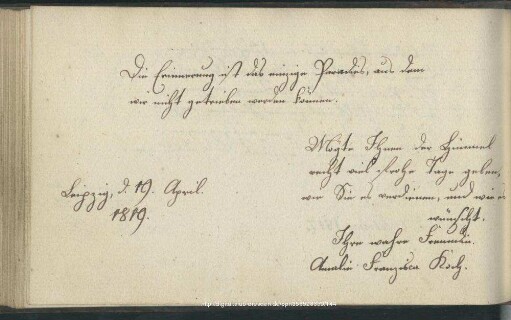 Die Erinnerung ist das einzige Paradies, aus dem
wir nicht getrieben werden können.
Mögte Ihnen der Himmel
recht viel frohe Tage geben,
wie Sie es verdienen, und wie es
wünscht,
Ihre wahre Freundin.
Amalie Franzisca Koch.
Leipzig, d. 19. April.
1819.